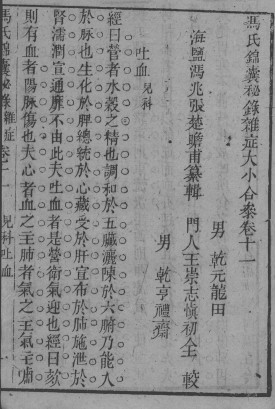 馮氏錦囊秘錄雜症大小合參卷十一
男 乾元龍田
海鹽馮兆張楚瞻甫纂輯 門人王崇志慎初仝 較
男 乾亨禮齋
吐血 兒科
經曰營者水穀之精也調和於五臟灑陳於六腑乃能入
於脉也生化於脾總統於心藏受於肝宣布於肺施泄於
腎濡潤宣通靡不由此夫吐血者是營衛氣逆也經曰欬
則有血者陽脉傷也夫心者血之主肺者氣之主氣主喣
馮氏錦囊秘錄 雜症卷十一 兒科吐血 一